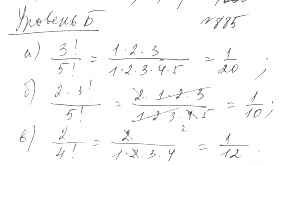 Уровень Б №885
а) 3!/5! = 1·2·3/1·2·3·4·5 = 1/20 ;
б) 2·3!/5! = 2·1·2·3/1·2·3·4·5 = 1/10 ;
в) 2/4! = 2/1·2·3·4 = 1/12 .